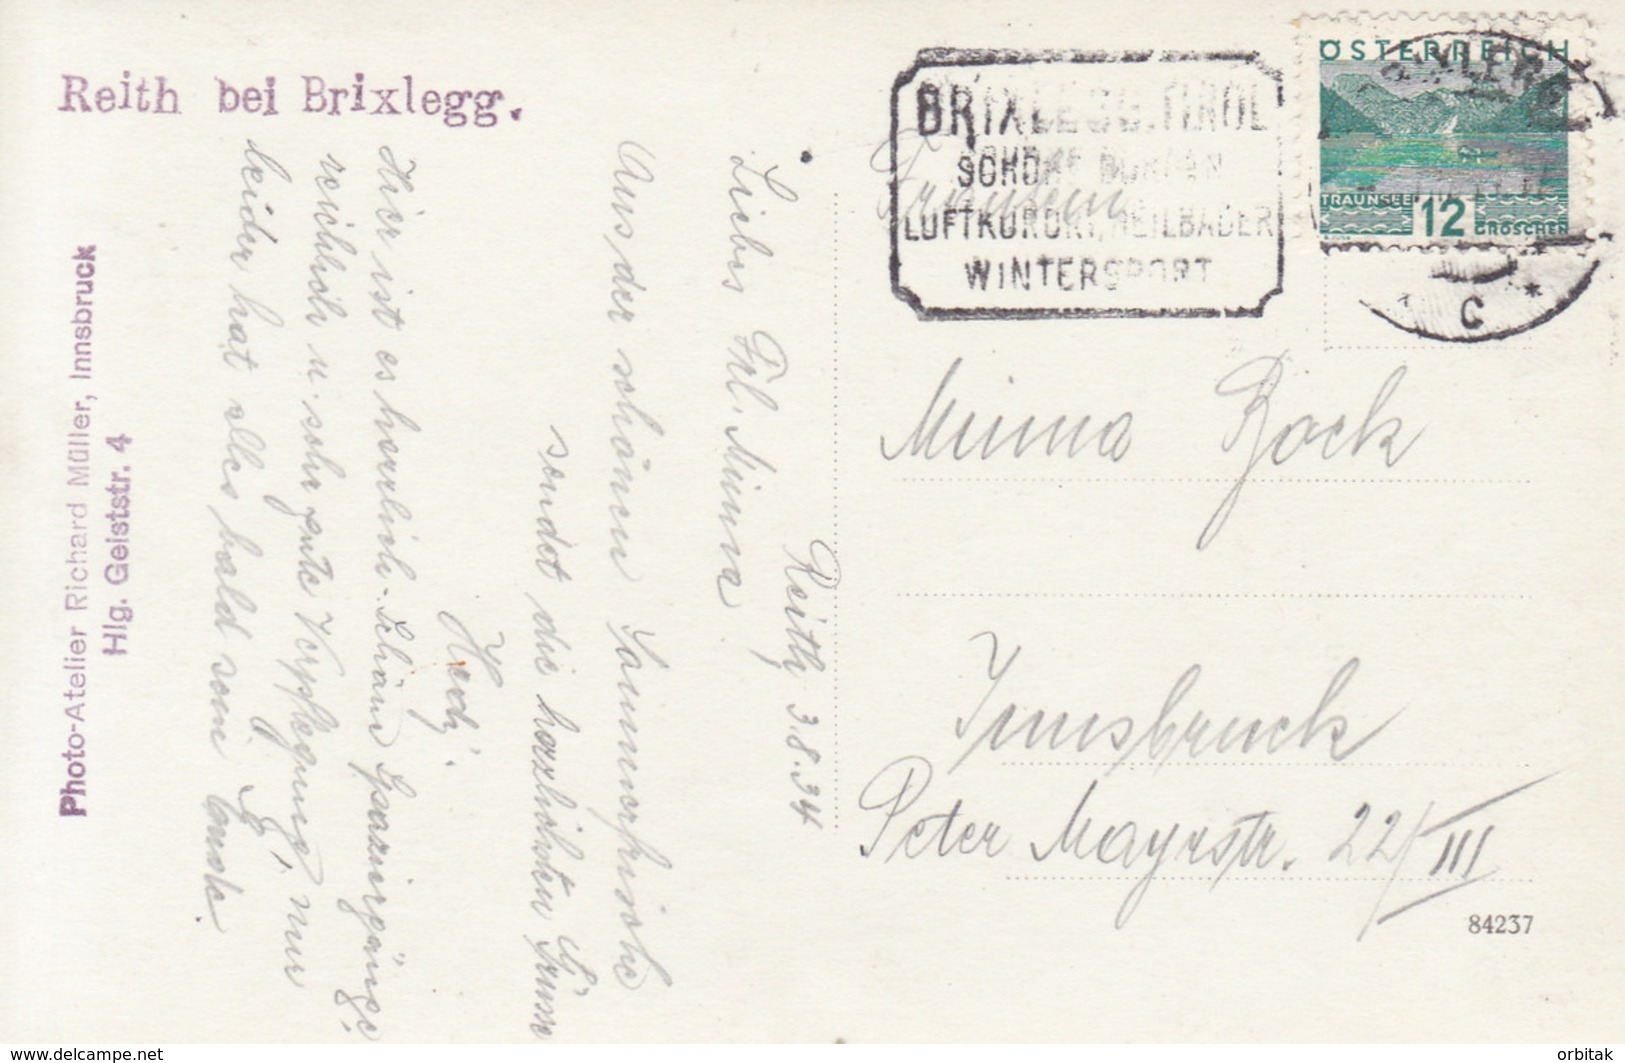 Reith bei Brixlegg.
Photo-Atelier Richard Müller, Innsbruck
Hlg. Geiststr. 4
Reith 3.8.34
Liebes Frl. Minna
Aus der schönen Sommerfrische
sendet die herzlichsten Grüsse
Hedi.
Hier ist es herrlich. Schöne Spaziergänge,
reichlich u. sehr gute Verpflegung, nur
leider hat alles bald sein Ende.
BRIXLEGG.TIROL
SCHÖNE BURGEN
LUFTKURORT, HEILBÄDER
WINTERSPORT
ÖSTERREICH
TRAUNSEE 12 GROSCHEN
C
Fräulein
Minna Bock
Innsbruck
Peter Mayrstr. 22/III
84237
www.delcampe.net
orbitak